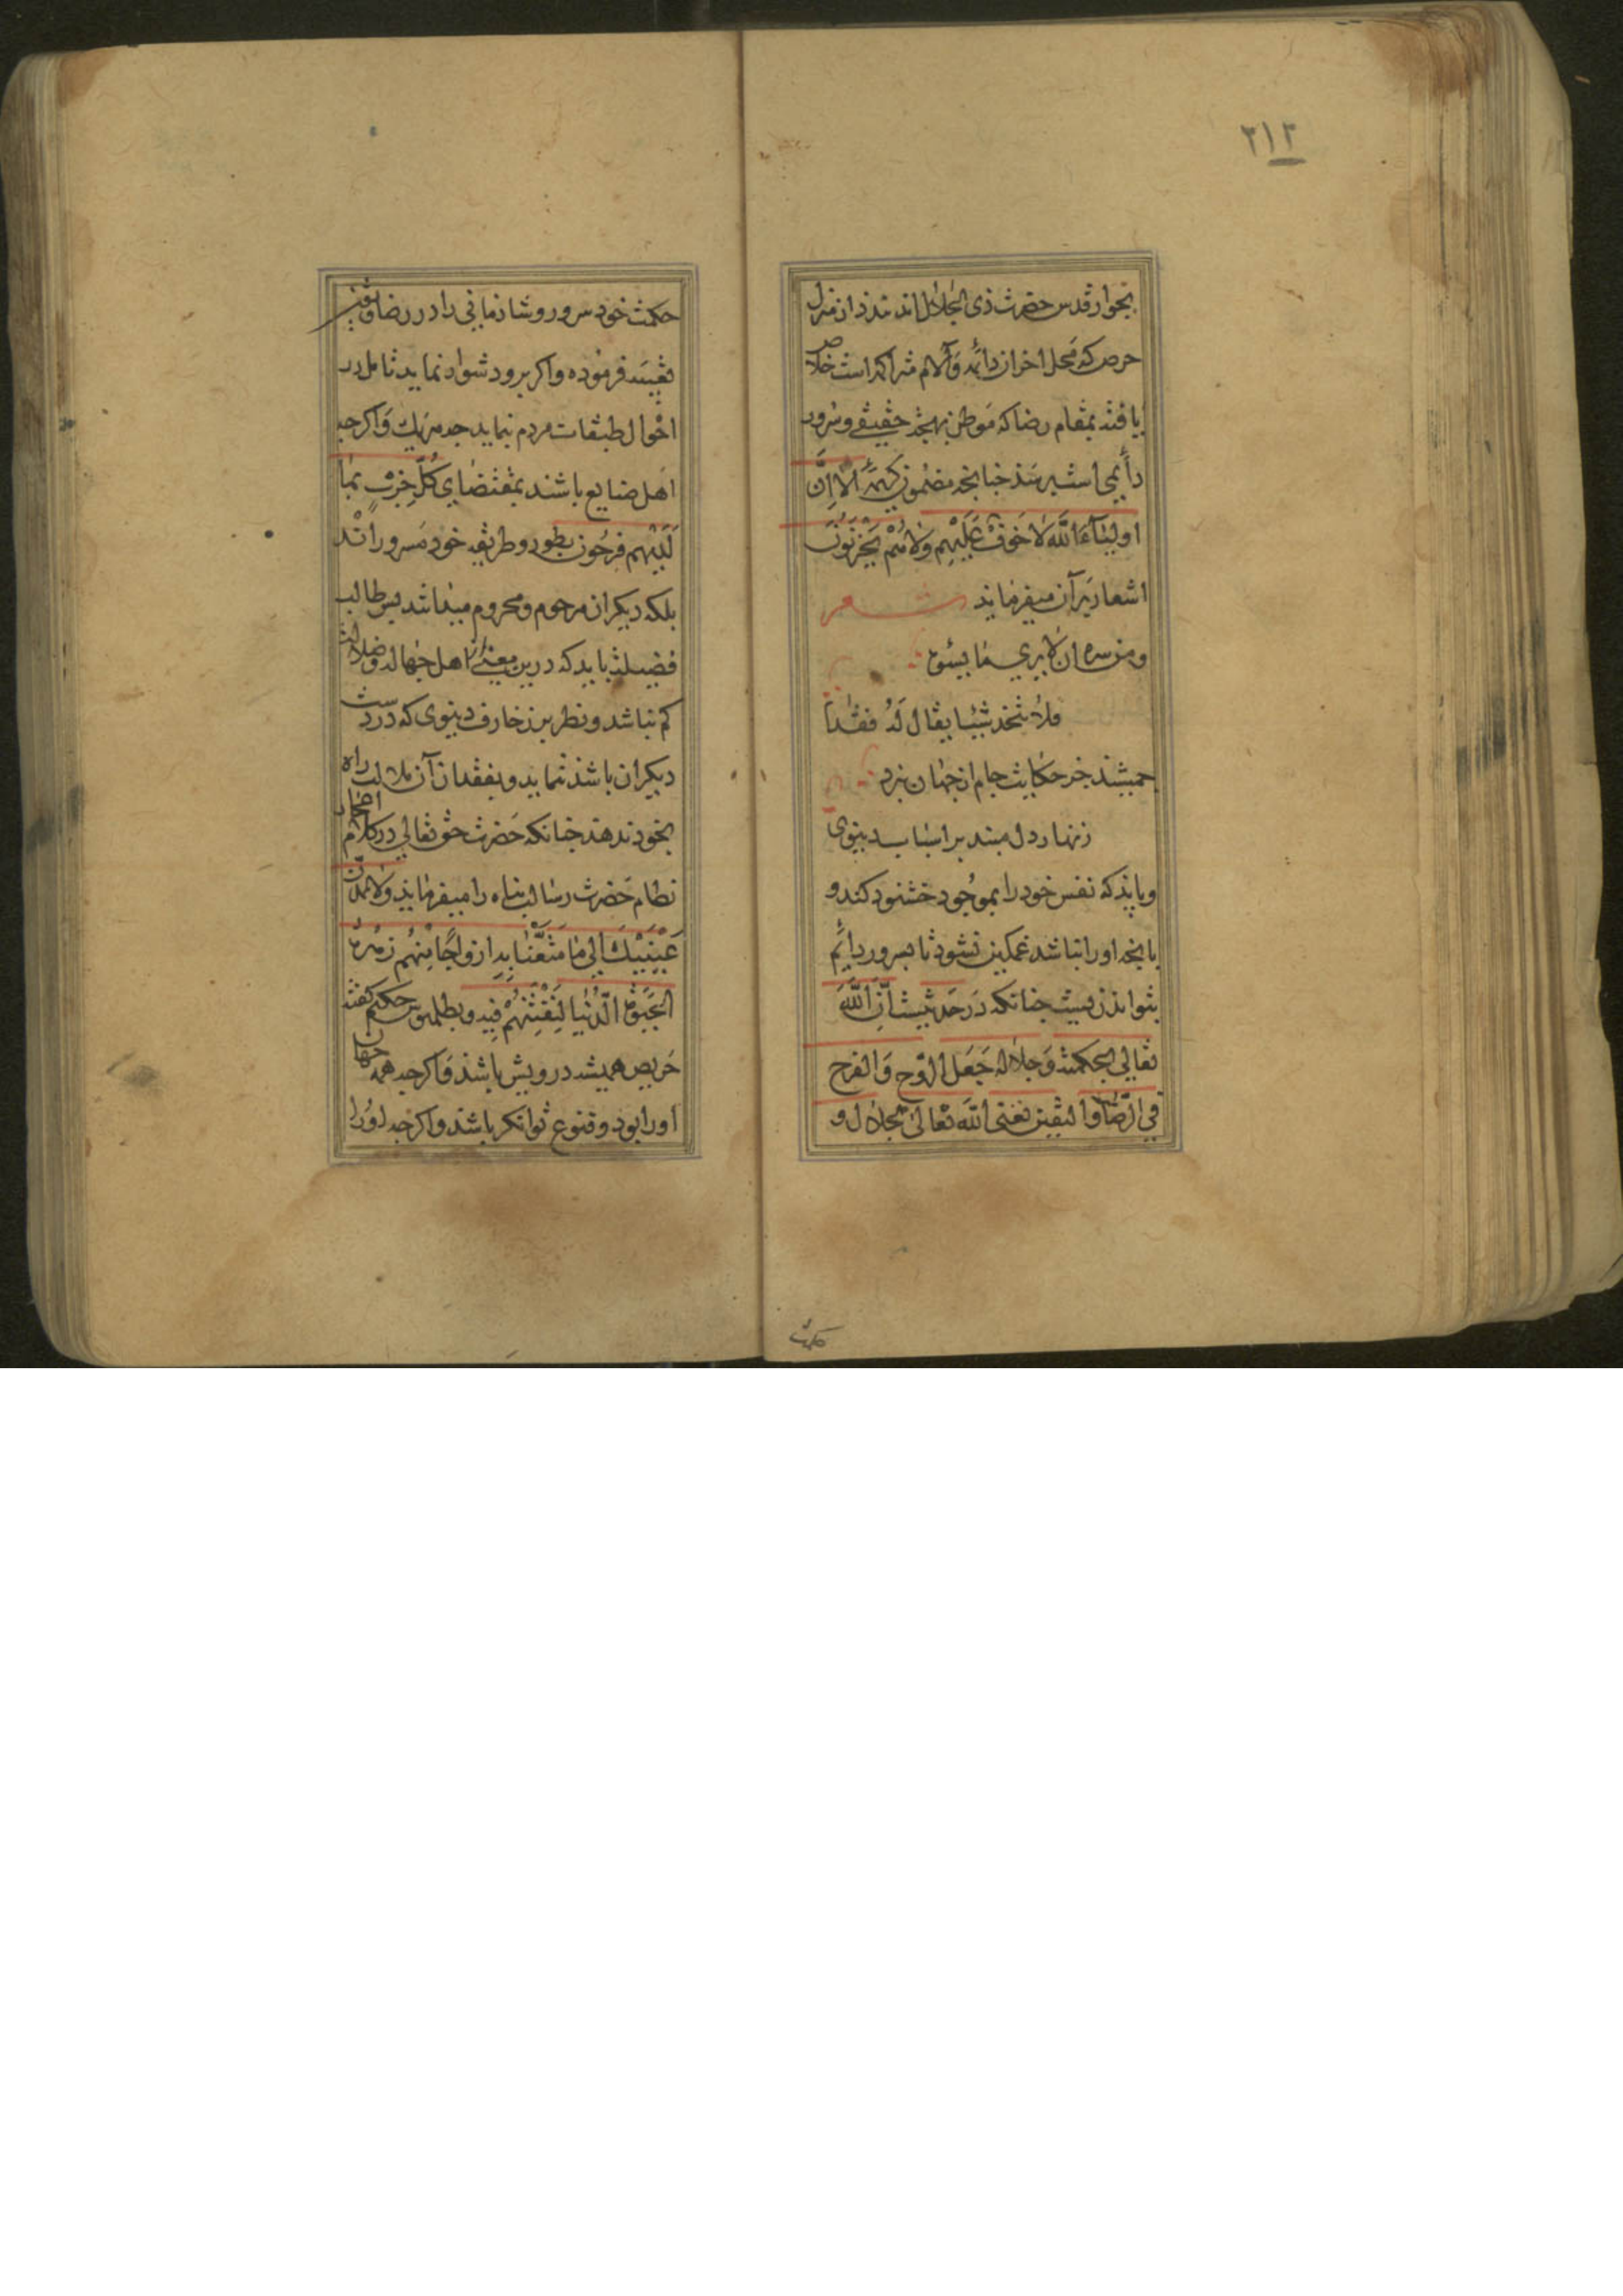 ۲۱۲
بجوار قدس حضرت ذی الجلال اندازد از منزل
حرص که محل احزان دائمه وآلام متراکمه است خلاص
یافته بمقام رضا که موطن بهجة حقیقی وسرور
دائمی است برسند چنانچه مضمون کریمۀ الا ان
اولیآء الله لا خوف علیهم ولا هم یحزنون
اشعار بر آن میفرماید شعر
ومن سره ان لا یری ما یسؤه
فلا یتخذ شیئا یقال له فقدا
جمشید جز حکایت جام از جهان نبرد
زنهار دل مبند بر اسباب دنیوی
وباید که نفس خود را بموجود خشنود کند و
بانچه او را نباشد غمکین نشود تا بسرور دائم
بتواند زیست چنانکه در حدیثست ان الله
تعالی بحکمته وجلاله جعل الروح والفرح
فی الرضا والیقین یعنی الله تعالی بجلال و
حکمت
حکمت خود سرور وشادمانی را در رضا ویقین
تعبیه فرموده واکر برو دشوار نماید تامل در
احوال طبقات مردم نماید چه هر یک واکر چه
اهل صنایع باشند بمقتضای کل حزب بما
لدیهم فرحون بطور وطریقه خود مسرورانند
بلکه دیکران مرحوم ومحروم میدانند پس طالب
فضیلت باید که درین معنی از اهل جهالت وضلالت
کم نباشد ونظر بر زخارف دنیوی که در دست
دیکران باشد ننماید وبفقدان آن ملالت راه
بخود ندهد چنانکه حضرت حق تعالی در کلام اعجاز
نظام حضرت رسالت پناه را میفرماید ولا تمدن
عینیک الی ما متعنا به ازواجا منهم زهرة
الحیوة الدنیا لنفتنهم فیه وبطلمیوس حکیم گفته
حریص همیشه درویش باشد واکر چه همه جهان
او را بود وقنوع توانکر باشد واکر چه او را